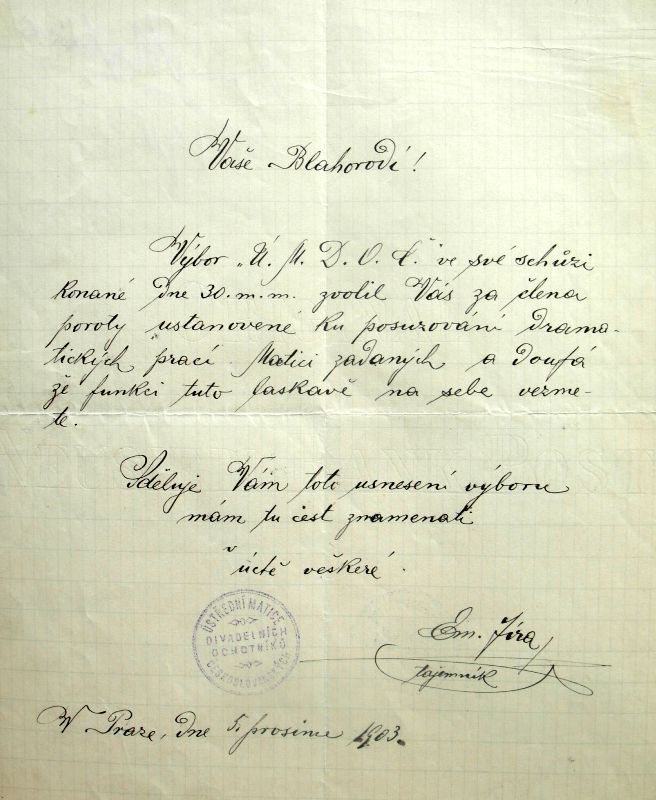 Vaše Blahorodí!
Výbor „Ú. M. D. O. Č." ve své schůzi
konané dne 30. m. m. zvolil Vás za člena
poroty ustanovené ku posuzování drama-
tických prací Matici zadaných a doufá
že funkci tuto laskavě na sebe vezme-
te.
Sděluje Vám toto usnesení výboru
mám tu čest znamenati
v úctě veškeré.
ÚSTŘEDNÍ MATICE
DIVADELNÍCH
OCHOTNÍKŮ
ČESKOSLOVANSKÝCH
Em. Jíra
tajemník
V Praze, dne 5. prosince 1903.